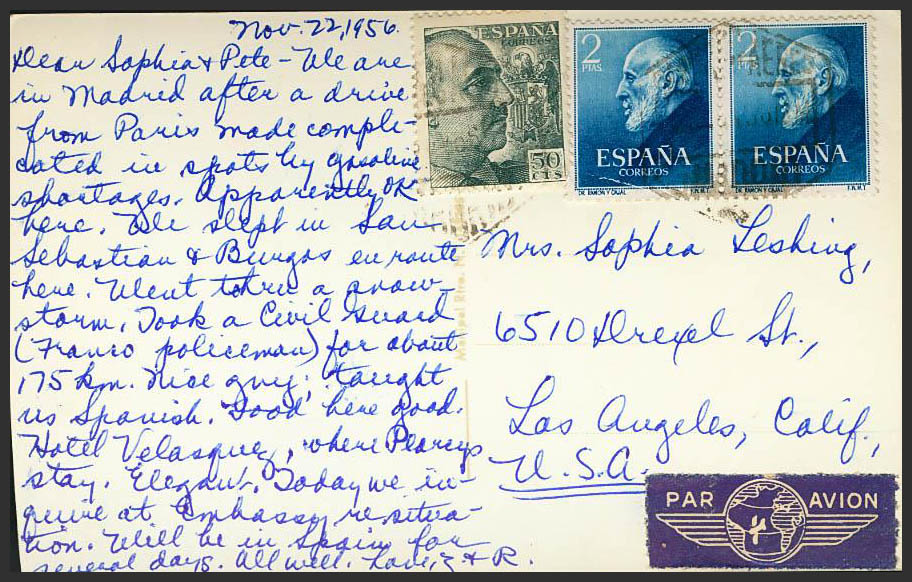 Nov. 22, 1956.
Dear Sophia & Pete - We are
in Madrid after a drive
from Paris made compli-
cated in spots by gasoline
shortages. Apparently OK
here. We slept in San
Sebastian & Burgos en route
here. Went thru a snow-
storm. Took a Civil Guard
(Franco policeman) for about
175 km. Nice guy; taught
us Spanish. Food here good.
Hotel Velasquez, where Pearcys
stay. Elegant. Today we in-
quire at Embassy re situa-
tion. Will be in Spain for
several days. All well. Love, & R.
ESPAÑA
CORREOS
50
CTS
2
PTAS.
ESPAÑA
CORREOS
DR. RAMON Y CAJAL F.N.M.T.
2
ESPAÑA
CORREOS
DR. RAMON Y CAJAL F.N.M.T.
Mrs. Sophia Leshing,
6510 Drexel St.,
Los Angeles, Calif.,
U.S.A.
PAR AVION